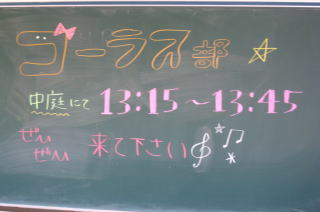 コーラス部
中庭にて 13:15～13:45
ぜひぜひ 来て下さい